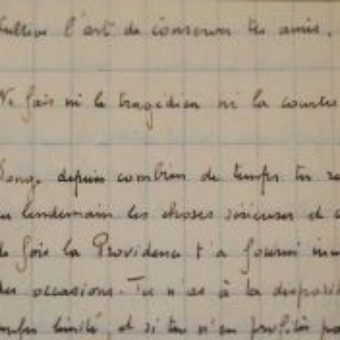 Cultive l'art de conserver tes amis.
Ne fais ni le tragédien ni la courtis
Songe depuis combien de temps tu re
au lendemain les choses sérieuses et c
de fois la Providence t'a fourni
des occasions. Tu n'as à ta disposit
temps limité, et si tu n'en profites pa